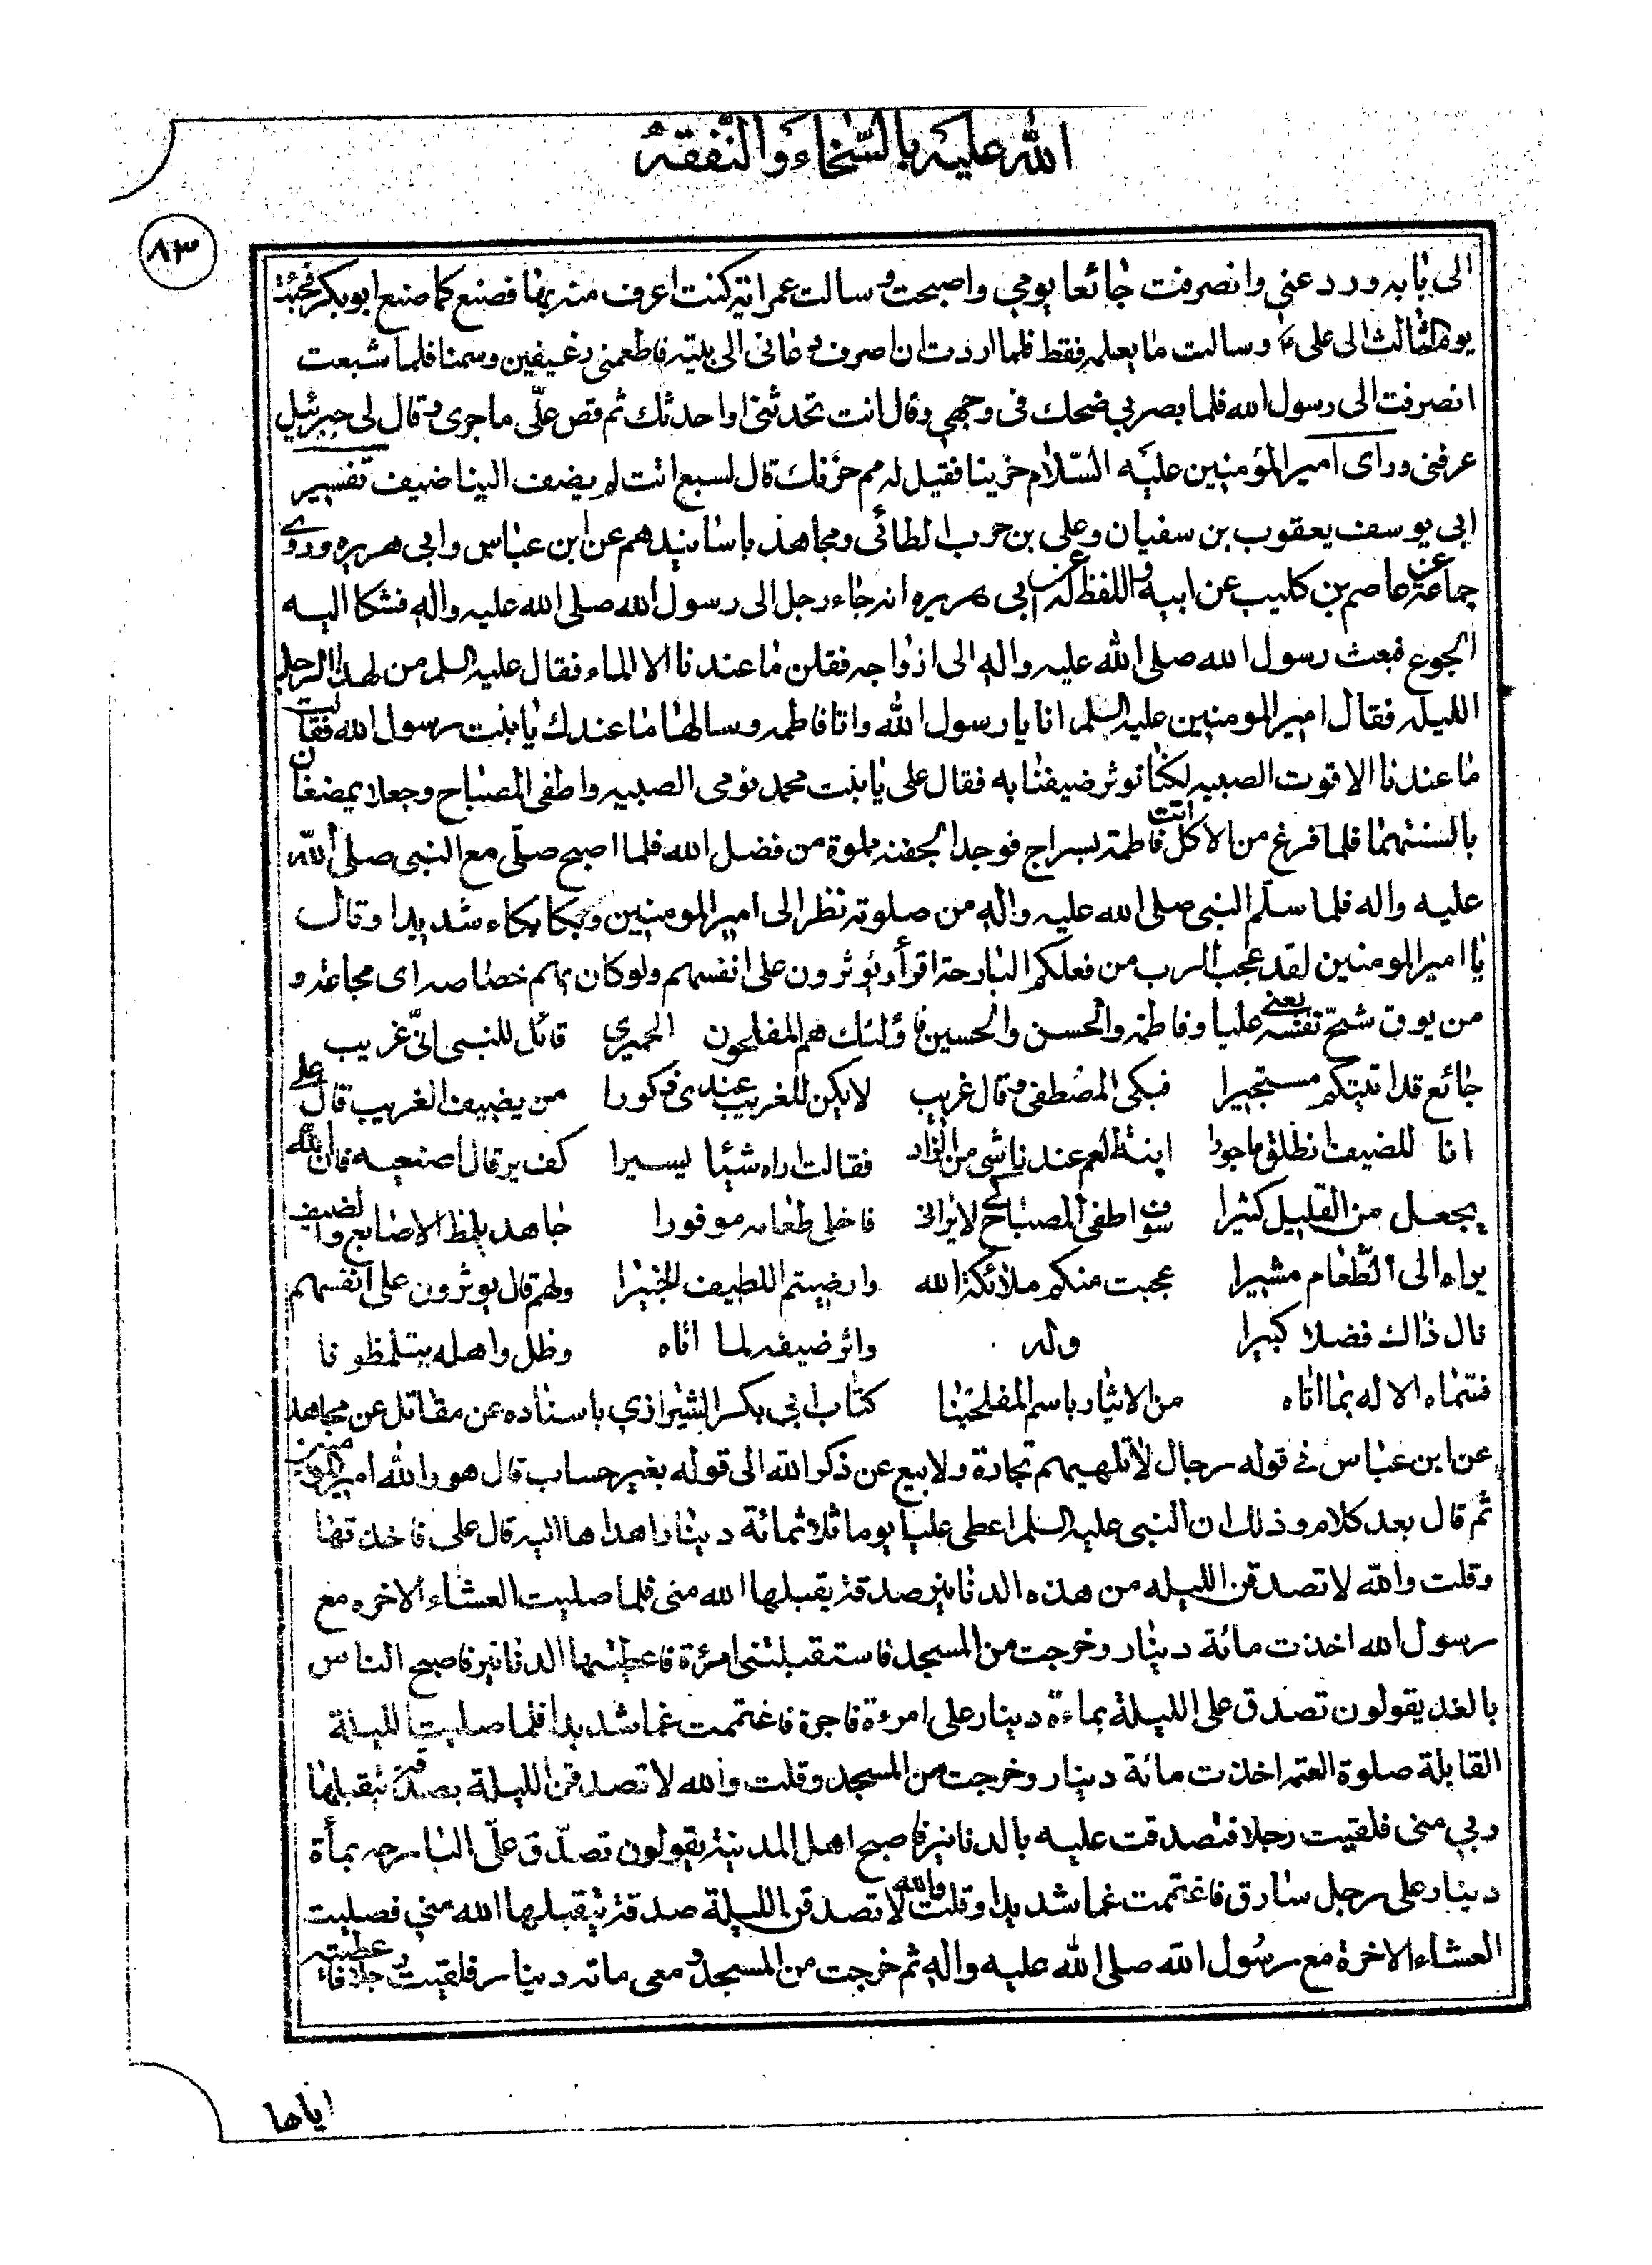 الله عليه بالسخاء والنفقه
٨٣
الى بابه وردعنى وانصرفت جائعا يومي واصبحت وسالت عمر اية كنت اعرف منه بها فصنع كما صنع ابو بكر فجئت
يوم الثالث الى على ع وسالت ما يعلمه فقط فلما اردت ان انصرف دعانى الى بيته فاطعمنى رغيفين وسمنا فلما شبعت
انصرفت الى رسول الله فلما بصر بي ضحك فى وجهي وقال انت تحدثنى او احدثك ثم قص علّى ما جرى وقال لى جبرئيل
عرفنى وراى امير المؤمنين عليه السّلام حزينا فقيل له مم حزنك قال لسبع اتت لم يضف الينا ضيف تفسير
ابي يوسف يعقوب بن سفيان وعلى بن حرب الطائى ومجاهد باسانيدهم عن ابن عباس وابي هريره وروى
جماعة عن عاصم بن كليب عن ابيه واللفظ له عن ابي هريره انه جاء رجل الى رسول الله صلى الله عليه واله فشكا اليه
الجوع فبعث رسول الله صلى الله عليه واله الى ازواجه فقلن ما عندنا الا الماء فقال عليه السلم من لهذا الرجل
الليله فقال امير المومنين عليه السلم انا يا رسول الله واتا فاطمه وسالها ما عندك يا بنت رسول الله فقالت
ما عندنا الا قوت الصبيه لكنا نوثر ضيفنا به فقال على يا بنت محمد نومى الصبيه واطفى المصباح وجعلا يمضغان
بالسنتهما فلما فرغ من الاكل اتت فاطمة بسراج فوجد الجفنه مملوة من فضل الله فلما اصبح صلّى مع النبى صلى الله
عليه واله فلما سلّم النبى صلى الله عليه واله من صلوته نظر الى امير المومنين وبكا بكاء شديدا وقال
يا امير المومنين لقد عجب الرب من فعلكم البارحة اقرأ ويوثرون على انفسهم ولو كان بهم خصاصه اى مجاعة و
من يوق شحّ نفسه يعنى عليا وفاطمه والحسن والحسين فاولئك هم المفلحون الحميري قائل للنبى انّى غريب
جائع قد اتيتكم مستجيرا فبكى المصطفى وقال غريب لا يكن للغريب عندى ذكورا من يضيف الغريب قال على
انا للضيف انطلق ماجورا ابنة العم عندنا شى من الزاد فقالت اراه شيئا يسيرا كف بر قال اصنعيه فان الله
يجعل من القليل كثيرا سوف اطفى المصباح كى لا يرانى فاخلى طعامه موفورا جاهد يلمظ الاصابع والضيف
يراه الى الطّعام مشيرا عجبت منكم ملائكة الله وارضيتم اللطيف الخبيرا ولهم قال يوثرون على انفسهم
نال ذاك فضلا كبيرا وله واثر ضيفه لما اتاه وظل واهله يتلمظونا
فسّماه الاله بما اتاه من الايثار باسم المفلحينا كتاب ابي بكر الشيرازي باسناده عن مقاتل عن مجاهد
عن ابن عباس فى قوله رجال لا تلهيهم تجارة ولا بيع عن ذكر الله الى قوله بغير حساب قال هو والله امير المومنين
ثم قال بعد كلام وذلك ان النبى عليه السلم اعطى عليا يوما ثلاثمائة دينارا هداها اليه قال على فاخذتها
وقلت والله لا تصدقن الليله من هذه الدنانير صدقة يقبلها الله منى فلما صليت العشاء الاخره مع
رسول الله اخذت مائة دينار وخرجت من المسجد فاستقبلتنى امرئة فاعطيتها الدنانير فاصبح الناس
بالغد يقولون تصدق على الليلة بماءة دينار على امرءة فاجرة فاغتممت غما شديدا فلما صليت الليلة
القابلة صلوة العتمه اخذت مائة دينار وخرجت من المسجد وقلت والله لا تصدقن الليلة بصدقة يتقبلها
ربي منى فلقيت رجلا فتصدقت عليه بالدنانير فاصبح اهل المدينة يقولون تصدّق علّى البارحه بمأة
دينار على رجل سارق فاغتممت غما شديدا وقلت والله لا تصدقن الليلة صدقة يتقبلها الله مني فصليت
العشاء الاخرة مع رسول الله صلى الله عليه واله ثم خرجت من المسجد ومعى ماته دينار فلقيت رجلا فاعطيته
اياها